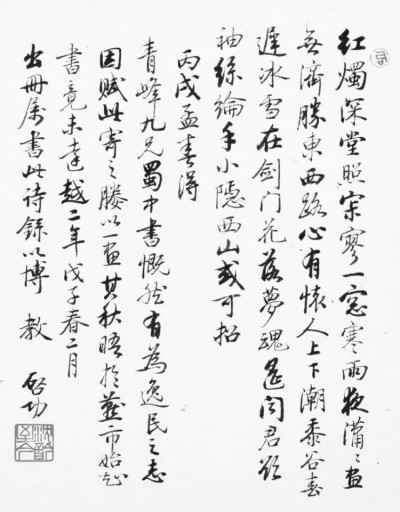 紅燭深堂照寂寥一窓寒雨夜瀟〻畫
無濟勝東西路心有懷人上下潮黍谷春
遲冰雪在劍门花落夢魂遙闻君欲
袖絲綸手小隐西山或可招
丙戌孟春得
青峰九兄蜀中書慨然有為逸民之志
因賦此寄之媵以一畫其秋晤於燕市始知
書竟未達越二年戊子春二月
出冊属書此詩録以博 教 啓功